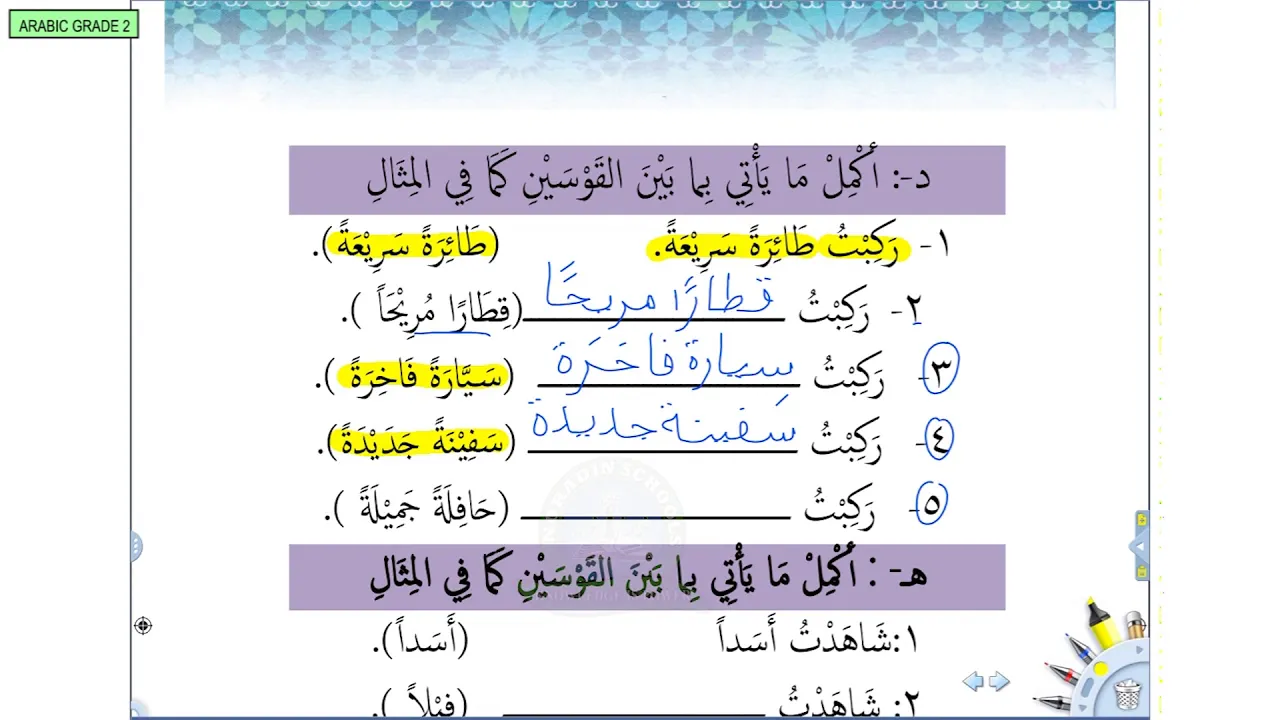 ARABIC GRADE 2
د-: أَكْمِلْ مَا يَأْتِي بِما بَيْنَ القَوْسَيْنِ كَمَا فِي المِثَالِ
١- رَكِبْتُ طَائِرَةً سَرِيْعَةً. (طَائِرَةً سَرِيْعَةً).
٢- رَكِبْتُ قطارًا مريحًا (قِطَارًا مُرِيْحَاً ).
٣- رَكِبْتُ سيارة فاخَرَة (سَيَّارَةً فَاخِرَةً ).
٤- رَكِبْتُ سَفينة جديدة (سَفِيْنَةً جَدَيْدَةً).
٥- رَكِبْتُ ________ (حَافِلَةً جَمِيْلَةً ).
هـ- : أَكْمِلْ مَا يَأْتِي بِما بَيْنَ القَوْسَيْنِ كَمَا فِي المِثَالِ
١: شَاهَدْتُ أَسَداً (أَسَداً).
٢: شَاهَدْتُ ________ (فِيْلاً ).